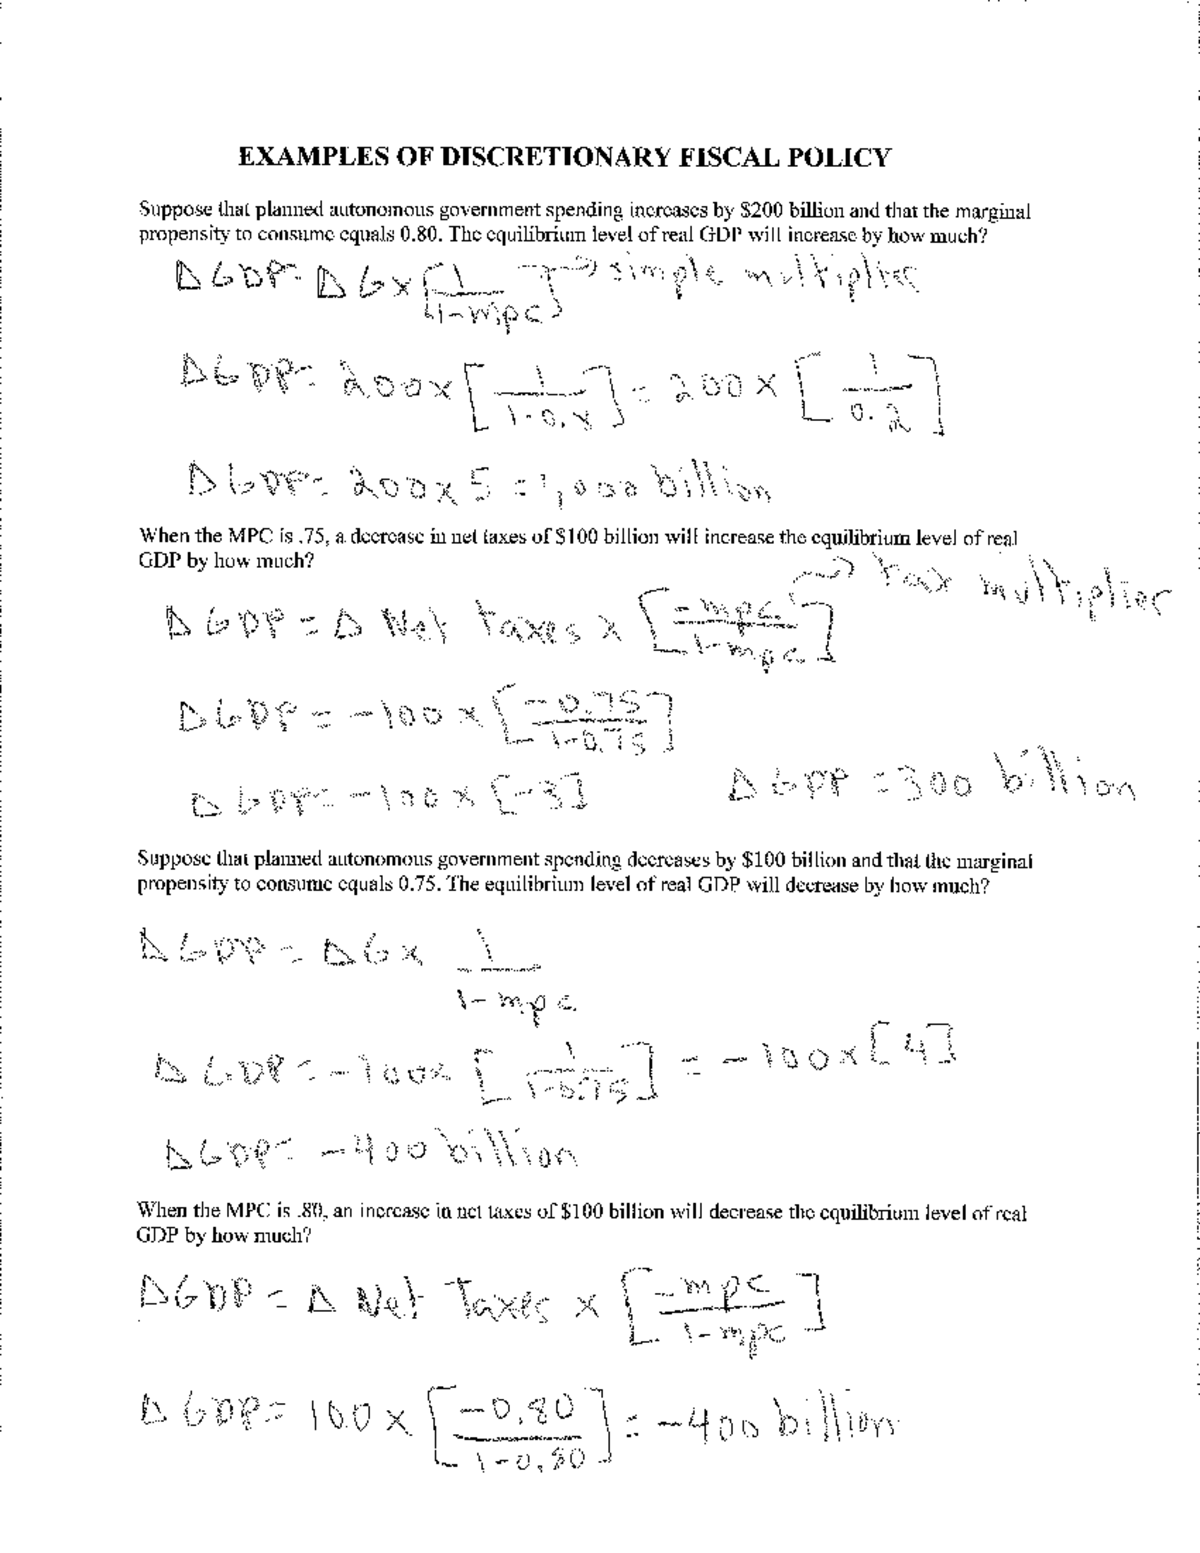 EXAMPLES OF DISCRETIONARY FISCAL POLICY
Suppose that planned autonomous government spending increases by $200 billion and that the marginal
propensity to consume equals 0.80. The equilibrium level of real GDP will increase by how much?
Δ GDP = Δ G x [1 / 1-mpc] → simple multiplier
Δ GDP = 200 x [1 / 1-0.8] = 200 x [1 / 0.2]
Δ GDP = 200 x 5 = 1,000 billion
When the MPC is .75, a decrease in net taxes of $100 billion will increase the equilibrium level of real
GDP by how much?
→ tax multiplier
Δ GDP = Δ Net taxes x [-mpc / 1-mpc]
Δ GDP = -100 x [-0.75 / 1-0.75]
Δ GDP = -100 x [-3] Δ GDP = 300 billion
Suppose that planned autonomous government spending decreases by $100 billion and that the marginal
propensity to consume equals 0.75. The equilibrium level of real GDP will decrease by how much?
Δ GDP = Δ G x 1 / 1-mpc
Δ GDP = -100 x [1 / 1-0.75] = -100 x [4]
Δ GDP = -400 billion
When the MPC is .80, an increase in net taxes of $100 billion will decrease the equilibrium level of real
GDP by how much?
Δ GDP = Δ Net Taxes x [-mpc / 1-mpc]
Δ GDP = 100 x [-0.80 / 1-0.80] = -400 billion